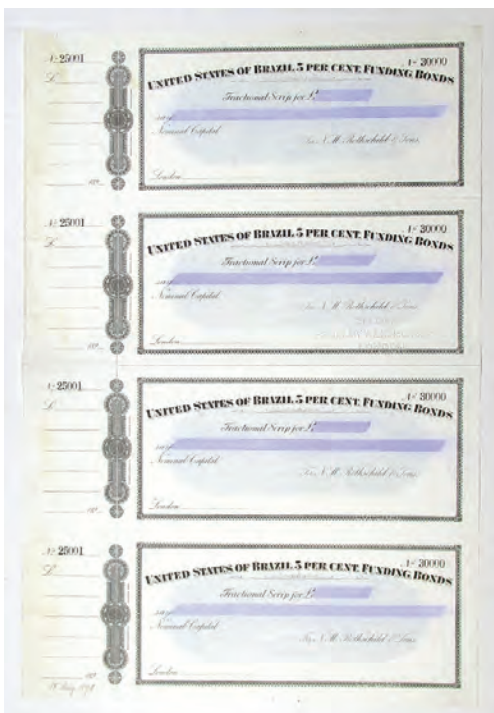 № 25001
£
189
№ 30000
UNITED STATES OF BRAZIL 5 PER CENT. FUNDING BONDS
Fractional Scrip for £
say
Nominal Capital
For N. M. Rothschild & Sons.
London
№ 25001
£
189
№ 30000
UNITED STATES OF BRAZIL 5 PER CENT. FUNDING BONDS
Fractional Scrip for £
say
Nominal Capital
For N. M. Rothschild & Sons.
London
№ 25001
£
189
№ 30000
UNITED STATES OF BRAZIL 5 PER CENT. FUNDING BONDS
Fractional Scrip for £
say
Nominal Capital
For N. M. Rothschild & Sons.
London
№ 25001
£
189
№ 30000
UNITED STATES OF BRAZIL 5 PER CENT. FUNDING BONDS
Fractional Scrip for £
say
Nominal Capital
For N. M. Rothschild & Sons.
London